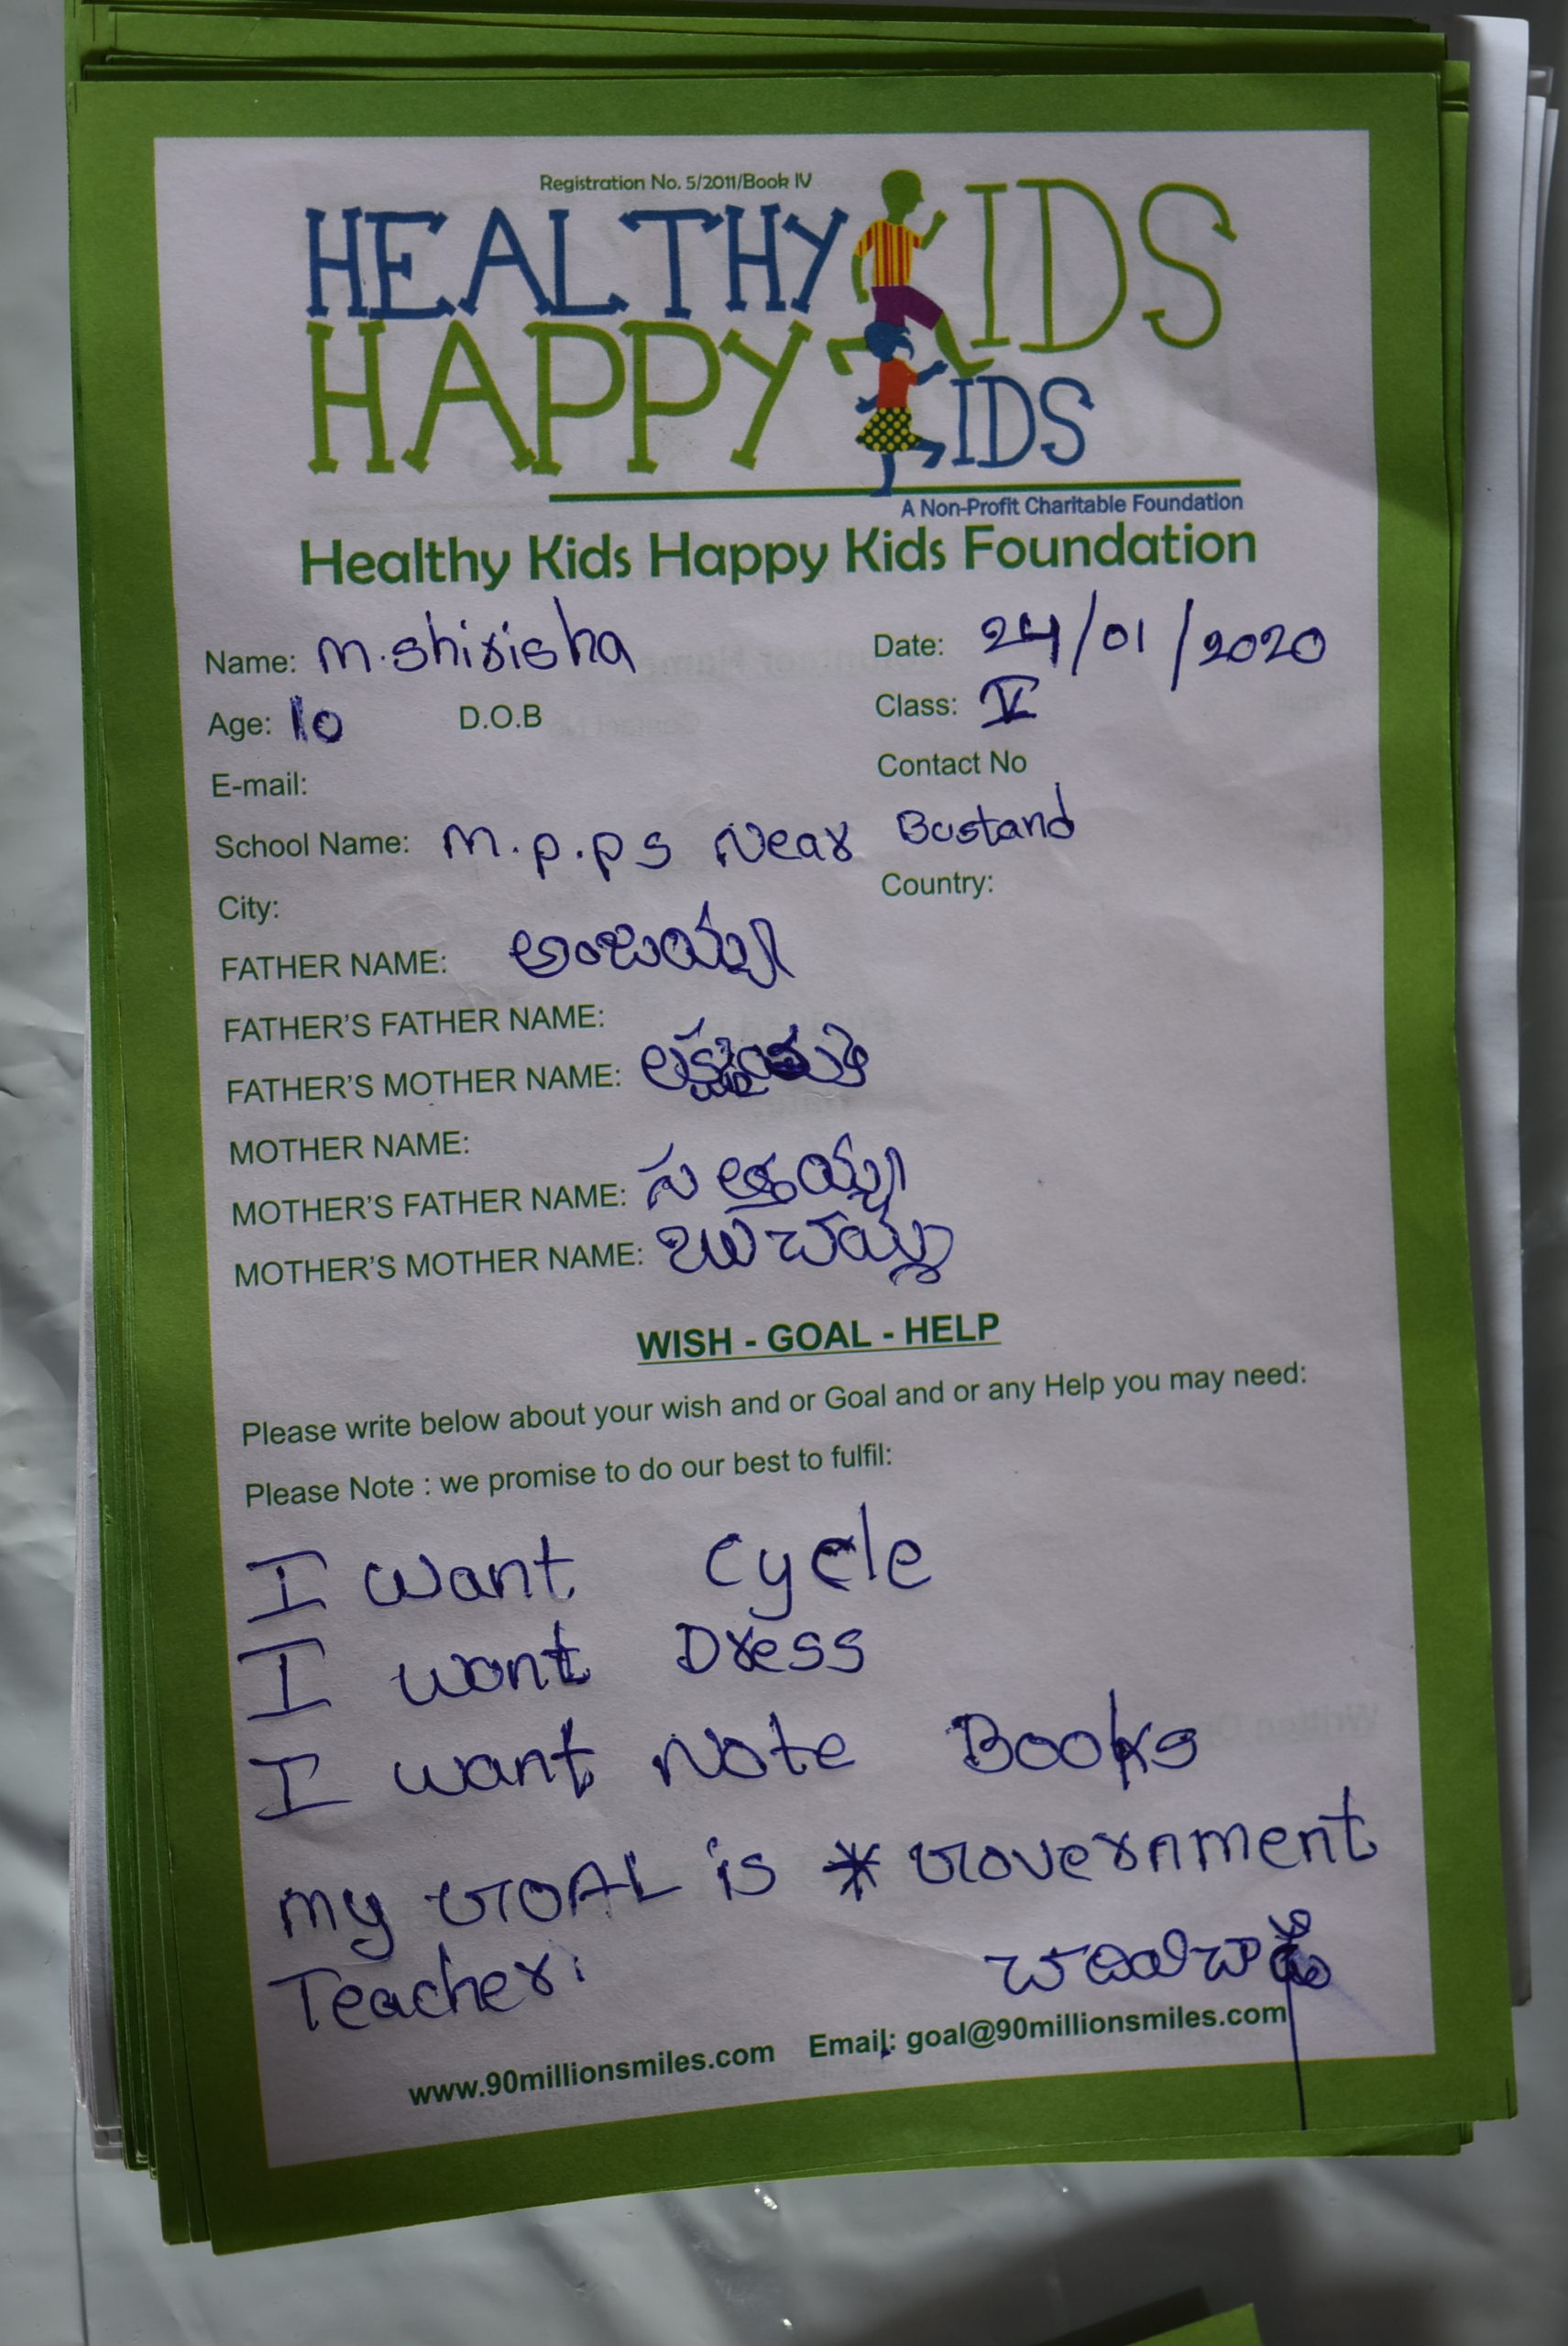 Registration No. 5/2011/Book IV
HEALTHY KIDS
HAPPY KIDS
A Non-Profit Charitable Foundation
Healthy Kids Happy Kids Foundation
Name: M.shirisha Date: 24/01/2020
Age: 10 D.O.B Class: V
E-mail: Contact No
School Name: M.p.ps Near Bustand
City: Country:
FATHER NAME: అంజయ్య
FATHER'S FATHER NAME:
FATHER'S MOTHER NAME:
MOTHER NAME:
MOTHER'S FATHER NAME: సత్తయ్య
MOTHER'S MOTHER NAME:
WISH - GOAL - HELP
Please write below about your wish and or Goal and or any Help you may need:
Please Note : we promise to do our best to fulfil:
I want cycle
I want Dress
I want Note Books
my GOAL is * Government
Teacher.
www.90millionsmiles.com Email: goal@90millionsmiles.com